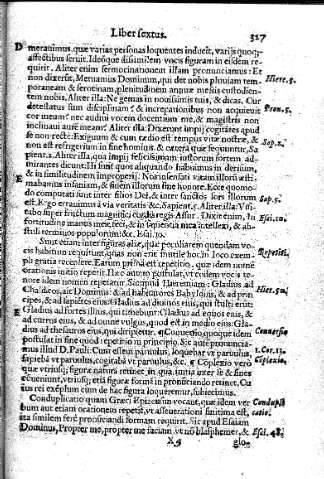 Liber sextus. 327
D merauimus, quæ varias personas loquentes inducit, varijs quoq;
affectibus seruit. Ideoque dissimilem vocis figuram in eisdem re-
quirit. Aliter enim sermocinationem illam pronunciamus: Et
non dixerunt, Metuamus Dominum, qui dat nobis pluuiam tem- Hiere. 5.
poraneam & serotinam, plenitudinem annuæ messis custodien-
tem nobis. Aliter illa: Ne gemas in nouissimis tuis, & dicas. Cur
detestatus sum disciplinam? & increpationibus non acquieuit Prou. 5.
cor meum? nec audiui vocem docentium me, & magistris non
inclinaui aurem meam? Aliter illa: Dixerunt impij cogitantes apud
se non recte: Exiguum & cum tædio est tempus vitæ nostræ, & Sap. 2.
non est refrigerium in fine hominis. & cætera quæ sequuntur,
Aliter illa, qua impij felicissimam iustorum sortem ad-
mirantes dicunt: Hi sunt quos aliquando habuimus in derisum,
E & in similitudinem improperij. Nos insensati vitam illorum æsti-
mabamus insaniam, & finem illorum sine honore. Ecce quomo-
do computati sunt inter filios Dei, & inter sanctos sors illorum Sap. 5.
est. Ergo errauimus à via veritatis &c. Aliter illa:
super fructum magnifici cordis regis Assur. Dixit enim, In Esai. 10.
fortitudine manus meæ feci, & in sapientia mea intellexi, & abs-
tuli terminos populorum: &c. Esai. 10.
Sunt etiam inter figuras aliæ, quæ peculiarem quendam vo-
cis habitum requirunt, quas non erit inutile hoc in loco exem-
plis gratia recensere. Earum prima est repetitio, quæ idem nomen Repetitio.
orationis initio repetit. Hæc autem postulat, vt eodem vocis te-
nore idem nomen repetatur. Sic apud Hieremiam: Gladius ad
Chaldæos, ait Dominus: & ad habitatores Babylonis, & ad prin- Hier. 50.
cipes, & ad sapientes eius. Gladius ad diuinos eius, qui stulti erunt
Gladius ad fortes illius, qui timebunt. Gladius ad equos eius, &
ad currus eius, & ad omne vulgus, quod est in medio eius. Gla-
dius ad thesauros eius, qui diripientur. Conuersio quoque idem Conuersio
postulat in fine quod repetitio in principio. Sic autem pronuncia-
mus illud D. Pauli: Cum essem paruulus, loquebar vt paruulus, 1. Cor. 13.
sapiebam vt paruulus, cogitabam vt paruulus, &c. Complexio verò Complexio.
quæ vtriusq; figuræ naturā retinet, in qua initia inter se & fines
conueniunt, vtriusq; etiā figuræ formā in pronunciando retinet. Cu-
ius rei exemplum cum de hac figura loqueremur, subiecimus.
Conduplicatio quam Græci Epizeuxin vocant, quæ idem ver Condupli
bum aut etiam orationem repetit, vt asseuerationi finitima est, catio.
ita similem ferè pronunciandi formam requirit. Sic apud Esaiam
Dominus, Propter me, propter me faciam vt nō blasphemer, & Esai. 48.
X 5 glo-